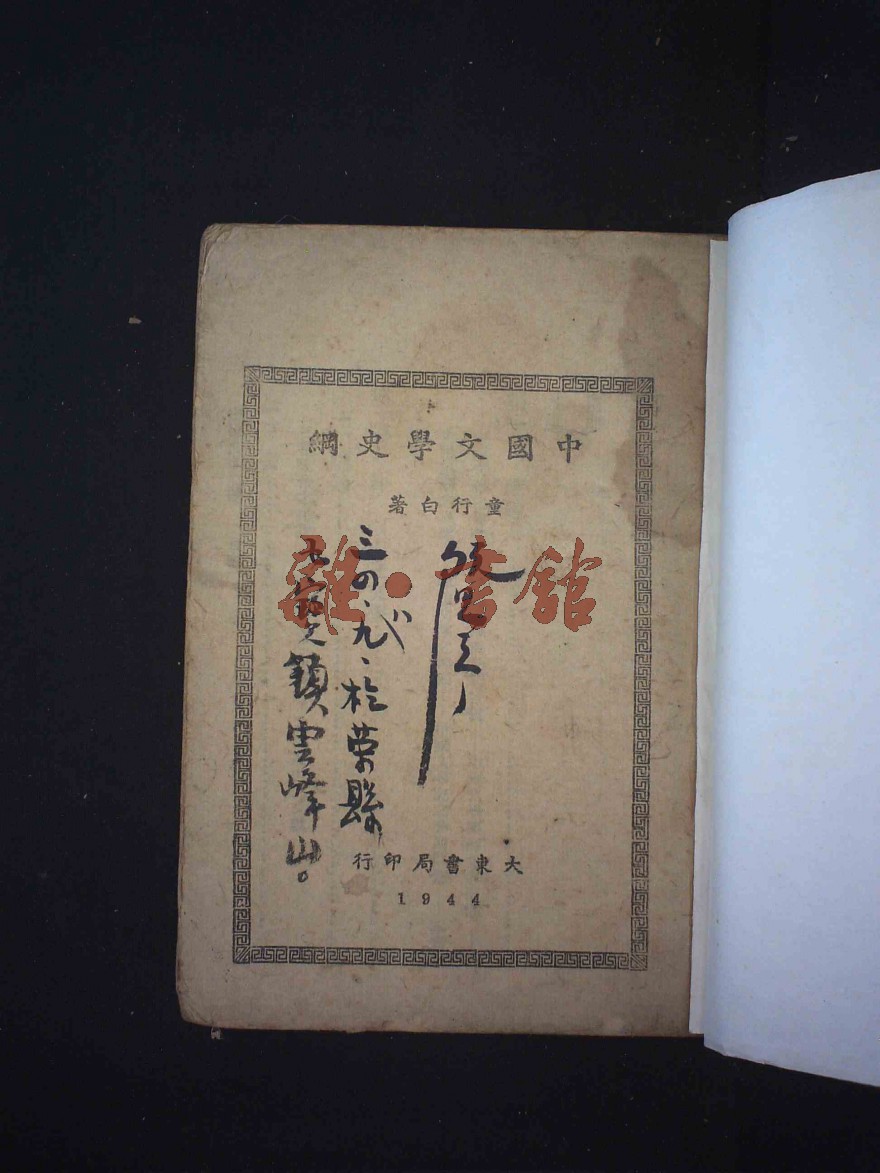 中國文學史綱
童行白著
雜·書館
三四、九、八、於榮縣
鎮雲峰山。
大東書局印行
1944